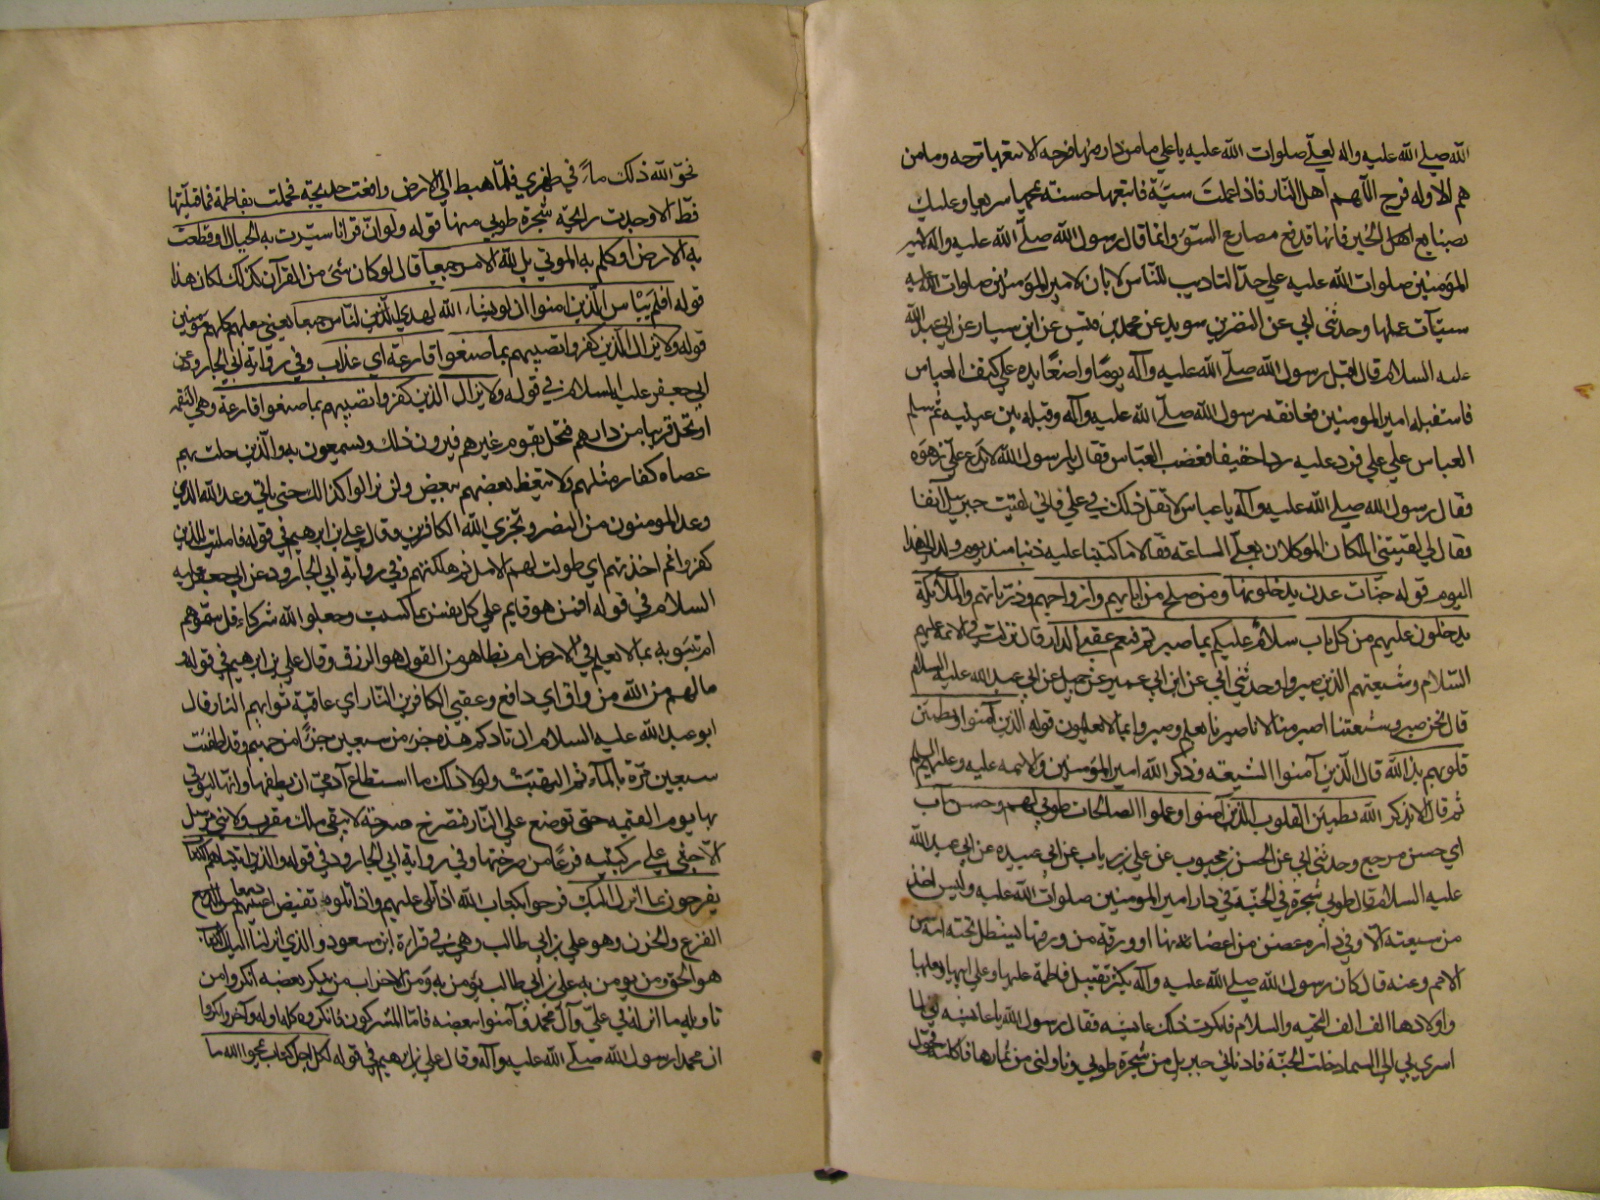 الله صلي الله عليه واله لعلّي صلوات الله عليه يا علي ما من دار فيها فرحه الا تبعها ترحه وما من
هم الا وله فرج الا هم اهل النار فاذا عملت سيّة فاتبعها حسنه تمحها سريعا وعليك
بصنايع اهل الخير فانها تدفع مصارع السوَء وانما قال رسول الله صلّي الله عليه واله لامير
المؤمنين صلوات الله عليه علي حدّ التاديب للنّاس لا بان لامير المؤمنين صلوات الله عليه
سيئات عملها وحدثنى ابي عن النضر بن سويد عن محمد بن قيس عن ابن سيار عن ابي عبد الله
عليه السلام قال اقبل رسول الله صلّي الله عليه وآله يومًا واضعًا يده علي كتف العباس
فاستقبله امير المومنين فعانقه رسول الله صلّي الله عليه وآله وقبله بين عينيه ثم سلم
العباس علي علي فرد عليه ردا خفيفا فغضب العبّاس فقال يا رسول الله لا يدع علي زهوه
فقال رسول الله صلي الله عليه وآله يا عباس لا تقل ذلك في علي فاني لقيت جبريل آنفا
فقال لي لقيني الملكان الموكلان بعلّي الساعة فقالا ما كتبنا عليه ذنبا منذ يوم ولد الي هذا
اليوم قوله جنّات عدن يدخلونها ومن صلح من ابايهم وازواجهم وذرياتهم والملائكة
يدخلون عليهم من كل باب سلام عليكم بما صبرتم فنعم عقبي الدار قال نزلت في الائمة عليهم
السّلام وشيعتهم الذين صبروا وحدثنى ابي عن ابن ابي عمير عن جميل عن ابي عبد الله عليه السلام
قال نحن صبر وشيعتنا اصبر منا لانا صبرنا بعلم وصبروا بما لا يعلمون قوله الذين آمنوا وتطمئن
قلوبهم بذكر الله قال الّذين آمنوا الشيعه وذكر الله امير المؤمنين والائمه عليه وعليهم السلم
ثم قال الا بذكر الله تطمين القلوب الذين آمنوا وعملوا الصالحات طوبي لهم وحسن مآب
اي حسن مرجع وحدثنى ابي عن الحسن بن محبوب عن علي بن رياب عن ابي عبيده عن ابي عبد الله
عليه السلام قال طوبي شجرة في الجنّة في دار امير المومنين صلوات الله عليه وليس احد
من شيعته الا وفي داره غصن من اغصانها او ورقة من ورقها يستظل تحته امة من
الامم وعنه قال كان رسول الله صلّي الله عليه وآله يكثر تقبيل فاطمة عليها وعلي ابيها وبعلها
واولادها الف الف التحيّه والسلام فانكرت ذلك عايشه فقال رسول الله يا عايشه اني لما
اسري بي الي السماء دخلت الجنّة فادناني جبريل من شجرة طوبي وناولنى من ثمارها فاكلته
نحوّ الله ذلك ماءً في ظهري فلمّا هبط الي الارض واقعت خديجة فحملت بفاطمة فما قبلتها
قطّ الا وجدت رايحة شجرة طوبي منها قوله ولو انّ قرانا سيّرت به الجبال او قطعت
به الارض او كلم به الموتي بل لله الامر جميعا قال لو كان شيء من القرآن كذلك لكان هذا
قوله افلم ييئاس الّذين امنوا ان لو يشاء الله لهدي النّاس جميعا يعني جعلهم كلهم مومنين
قوله ولا يزال الّذين كفروا تصيبهم بما صنعوا قارعة اي عذاب وفي رواية ابي الجارود عن
ابي جعفر عليه السلام في قوله ولا يزال الذين كفروا تصيبهم بما صنعوا قارعة وهي النقمه
او تحل قريبا من دارهم فتحل بقوم غيرهم فيرون ذلك ويسمعون به والّذين حلت بهم
عصاه كفار مثلهم ولا يتعظ بعضهم ببعض ولن يزالوا كذالك حتى ياتي وعد الله الذي
وعد المومنون من النصر ويخزي الله الكافرين وقال علي بن ابرهيم في قوله فامليت للذين
كفروا ثم اخذتهم اي طولت لهم الامل ثم اهلكتهم وفي رواية ابي الجارود عن ابي جعفر عليه
السلام في قوله افمن هو قايم علي كل نفس بما كسبت وجعلوا لله شركاء قل سمّوهم
ام تنبئونه بما لا يعلم في الارض ام بظاهر من القول هو الرزق وقال علي بن ابرهيم في قوله
ما لهم من الله من واق اي دافع وعقبي الكافرين النّار اي عاقبة ثوابهم النار قال
ابو عبد الله عليه السلام ان ناركم هذه جزء من سبعين جزءًا من جهنم وقد اطفئت
سبعين مرّة بالمآء ثم التهبت ولولا ذلك ما استطاع آدمي ان يطفيها وانها ليوتي
بها يوم القيمه حتى توضع علي النّار فتصرخ صرخة لا يبقي ملك مقرب ولا نبي مرسل
الا جثي علي ركبتيه فزعًا من صرختها وفي رواية ابي الجارود في قوله والذين اتيناهم الكتاب
يفرحون بما انزل اليك فرحوا بكتاب الله اذا تلي عليهم واذا تلوه تفيض اعينهم دمعا من
الفزع والحزن وهو علي بن ابي طالب وهي في قراءة ابن مسعود والذي انزلنا اليك الكتاب
هو الحق ومن يومن به علي بن ابي طالب يؤمن به ومن الاحزاب من ينكر بعضه انكروا من
تاويله ما انزله في عليّ وآل محمد وآمنوا ببعضه فامّا المشركون فانكروه كله اوله وآخره وانكروا
ان محمدا رسول الله صلّي الله عليه وآله وقال علي بن ابرهيم في قوله لكل اجل كتاب يمحوا الله ما